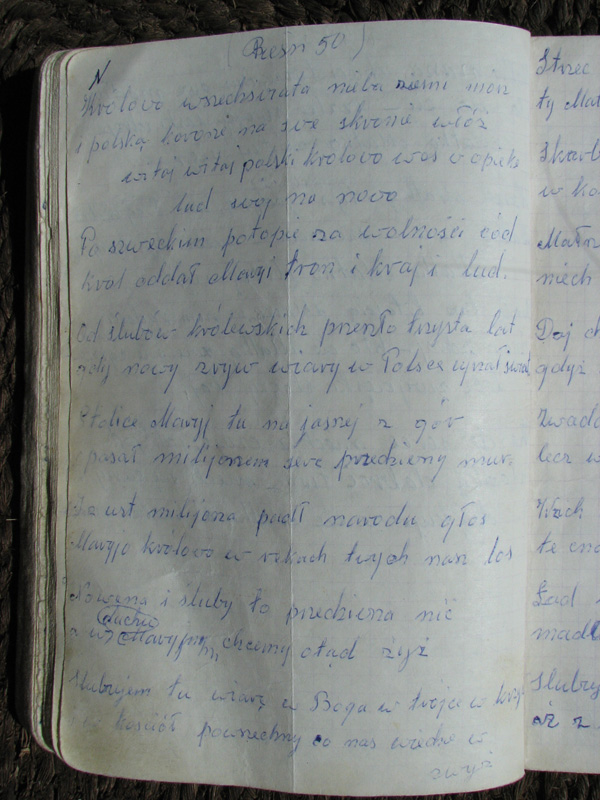 (Piesń 50)
N
Królowo wszechświata nieba ziemi mórz
i polską koronę na swe skronie włóż
witaj witaj polski królowo weś w opiekę
lud swój na nowo
Po szweckim potopie za wolności cód
Król oddał Maryi tron i kraj i lud.
Od ślubów królewskich przeszło trzysta lat
gdy nowy zryw wiary w Polsce ujrzał świat
Stolice Maryj tu na jasnej z gór
opasał milijonem serc przedziwny mur.
Za ust milijona padł narodu głos
Maryjo królowo w rękach twych nasz los
Nowenna i śluby to przedziwna nić
duchu
z w Maryjnym chcemy otąd żyż
Ślubujem tu wiarę w Boga w trójce w krzyż
i w kościół powszechny co nas wiedzie w
zwyż
Strzec
ty Mat
Skarb
w ko
Małż
niech
Daj
gdyż
Zwad
lecz w
Wzch
te cno
Ład
madl
Ślubuj
aż z